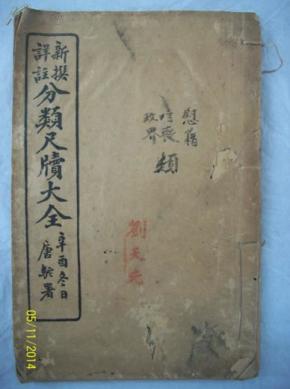 新撰
詳註
分類尺牘大全
辛酉冬日
唐駝署
慰藉
唁喪
政界
類
劉天先
05/11/2014